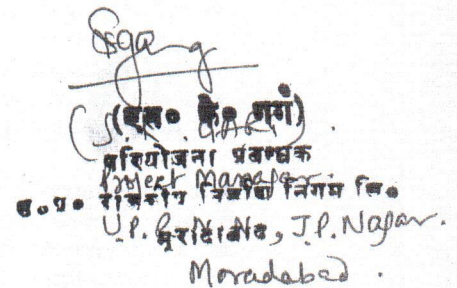 (एस० के० गर्ग)
(S. K. GARG).
परियोजना प्रबन्धक
Project Manager
उ.प्र. राजकीय निर्माण निगम लि०
U.P. R. N. N., J.P. Nagar.
मुरादाबाद
Moradabad.